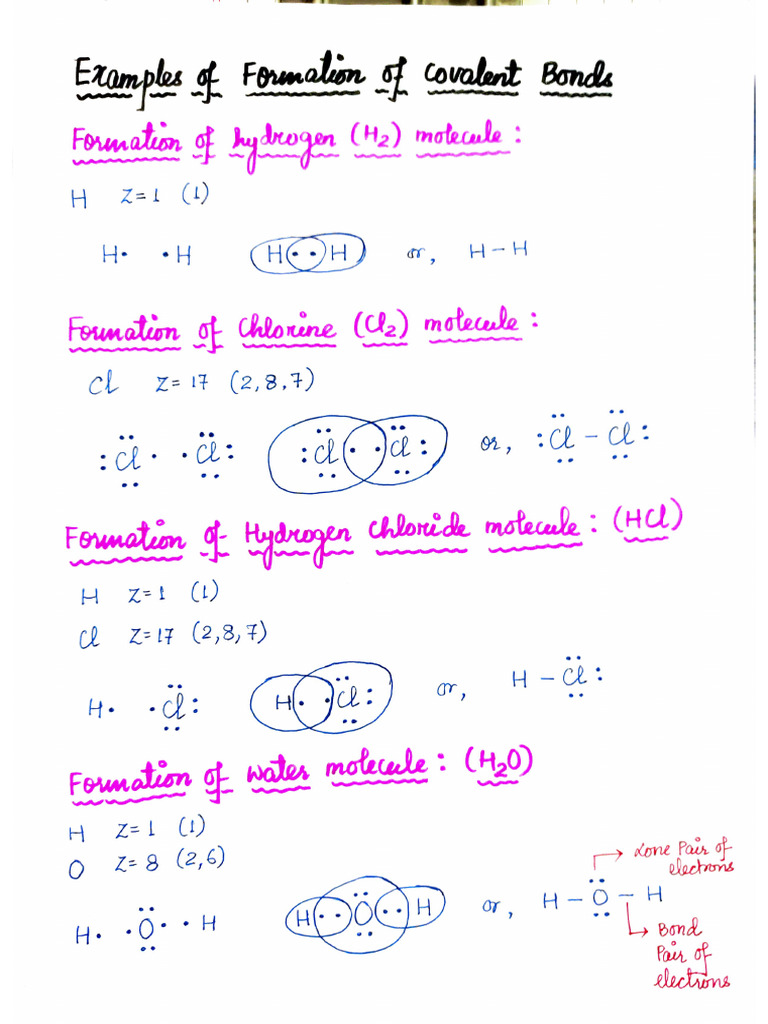 Examples of Formation of Covalent Bonds
Formation of hydrogen (H₂) molecule :
H Z=1 (1)
H• •H H••H or, H–H
Formation of Chlorine (Cl₂) molecule :
Cl Z=17 (2,8,7)
:Cl• •Cl: :Cl••Cl: or, :Cl–Cl:
Formation of Hydrogen chloride molecule : (HCl)
H Z=1 (1)
Cl Z=17 (2,8,7)
H• •Cl: H••Cl: or, H–Cl:
Formation of water molecule : (H₂O)
H Z=1 (1)
O Z=8 (2,6)
H• •O• •H H••O••H or, H–O–H
Lone Pair of
electrons
Bond
Pair of
electrons